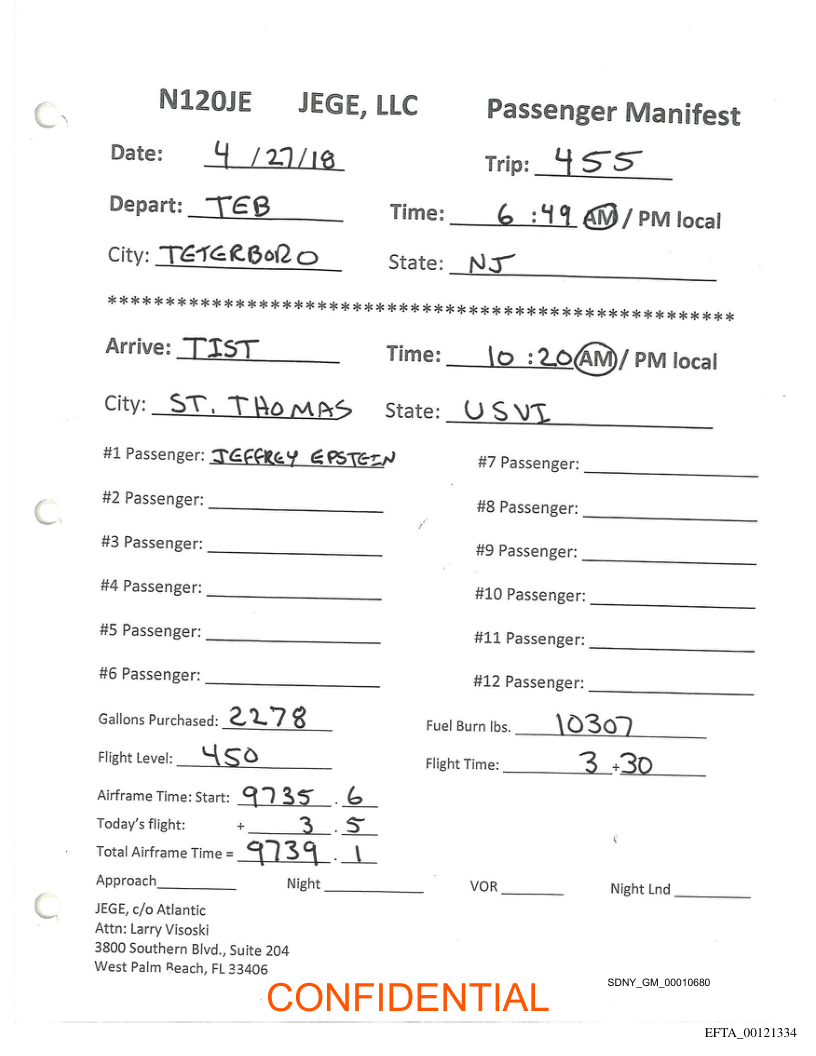 N120JE JEGE, LLC Passenger Manifest
Date: 4 /27/18 Trip: 455
Depart: TEB Time: 6 :49 AM / PM local
City: TETERBORO State: NJ
******************************************************
Arrive: TIST Time: 10 :20 AM / PM local
City: ST. THOMAS State: USVI
#1 Passenger: JEFFREY EPSTEIN #7 Passenger:
#2 Passenger: #8 Passenger:
#3 Passenger: #9 Passenger:
#4 Passenger: #10 Passenger:
#5 Passenger: #11 Passenger:
#6 Passenger: #12 Passenger:
Gallons Purchased: 2278 Fuel Burn lbs. 10307
Flight Level: 450 Flight Time: 3 +30
Airframe Time: Start: 9735 . 6
Today's flight: + 3 . 5
Total Airframe Time = 9739 . 1
Approach Night VOR Night Lnd
JEGE, c/o Atlantic
Attn: Larry Visoski
3800 Southern Blvd., Suite 204
West Palm Beach, FL 33406
SDNY_GM_00010680
CONFIDENTIAL
EFTA_00121334